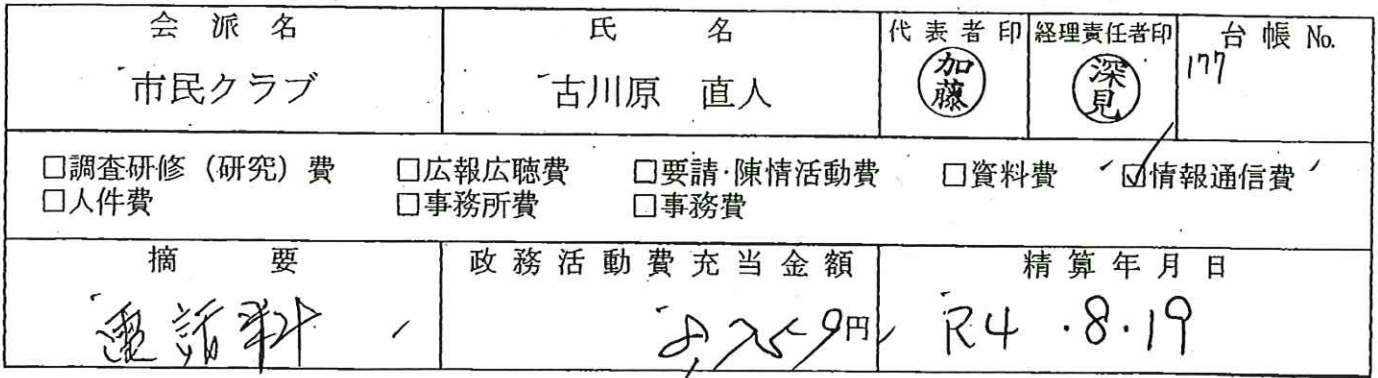 会派名 氏名 代表者印 経理責任者印 台帳No.
市民クラブ 古川原 直人 加藤 深見 177
□調査研修（研究）費 □広報広聴費 □要請・陳情活動費 □資料費 ☑情報通信費
□人件費 □事務所費 □事務費
摘要 政務活動費充当金額 精算年月日
電話料 8,759円 R4.8.19